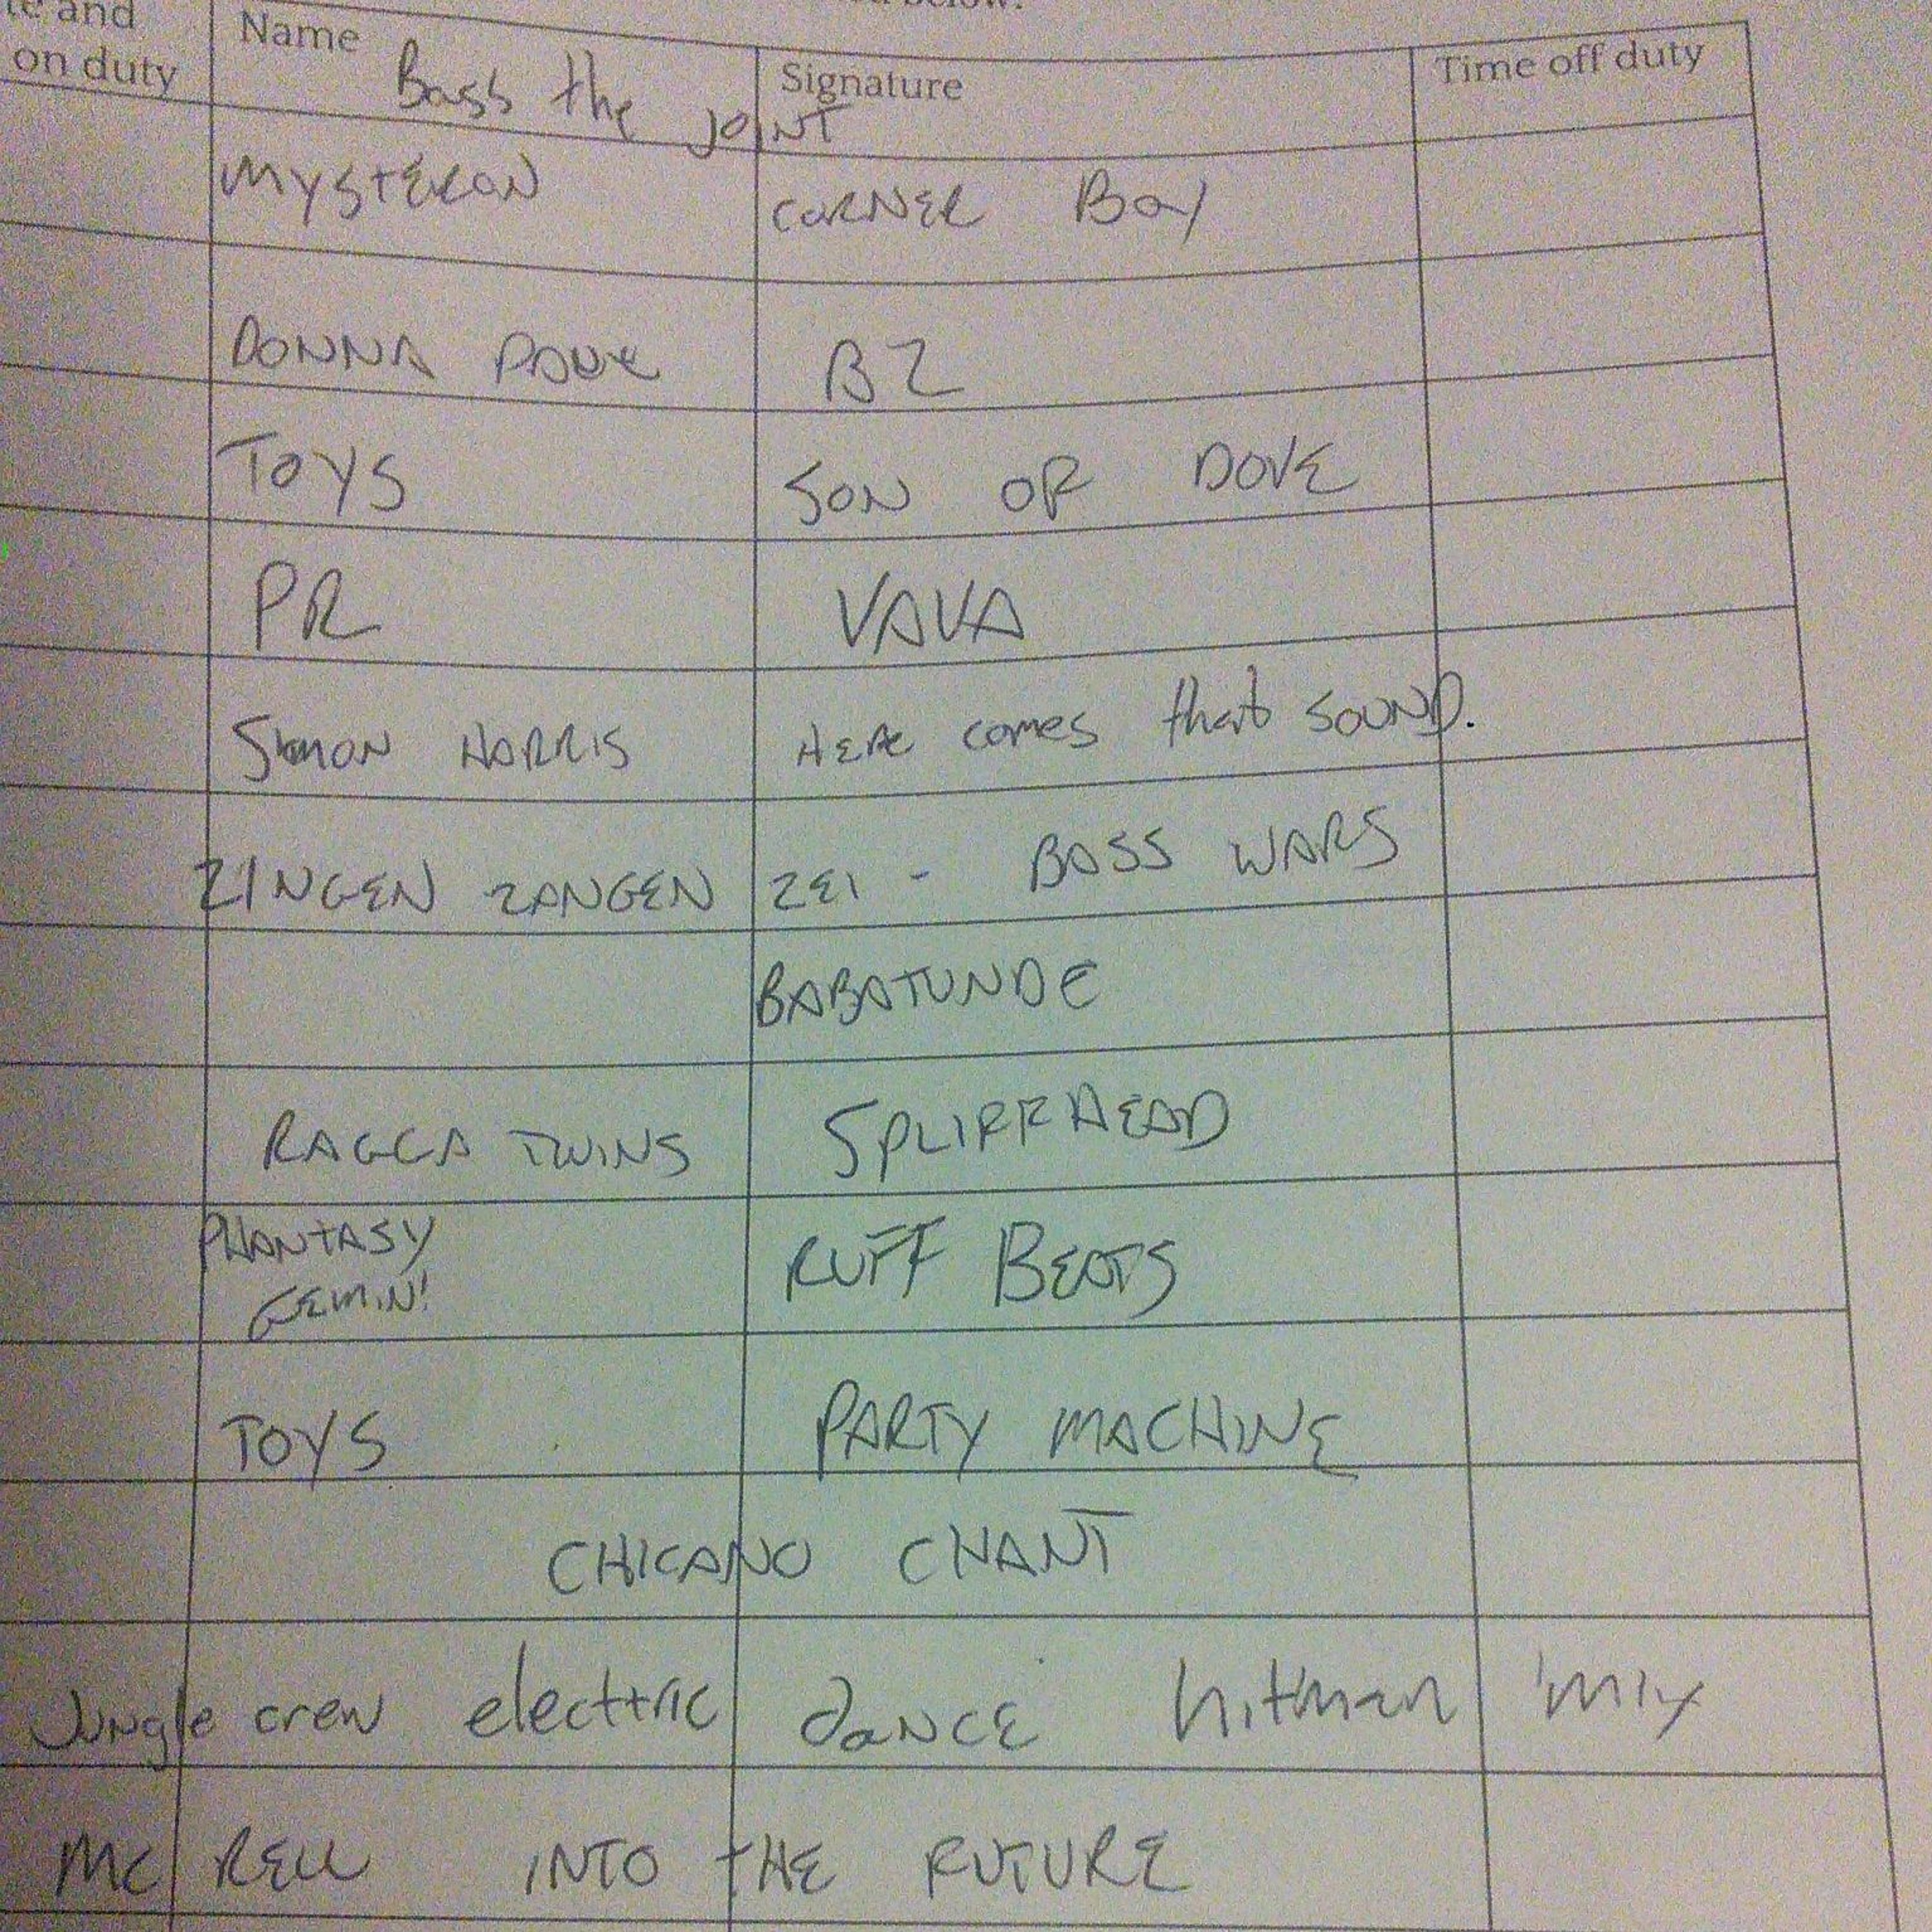 on duty
Name
Signature
Time off duty
Bass the JOINT
MYSTERON CORNER BOY
DONNA BZ
TOYS SON OF DOVE
PR VAVA
SIMON HARRIS HERE comes that SOUND.
ZINGEN ZANGEN ZEI - BASS WARS
BABATUNDE
RAGGA TWINS SPLIFFHEAD
PHANTASY RUFF BEATS
GEMINI
TOYS PARTY MACHINE
CHICANO CHANT
Jungle crew electric dance hitman 'mix
MC RELL INTO tHE FUTURE